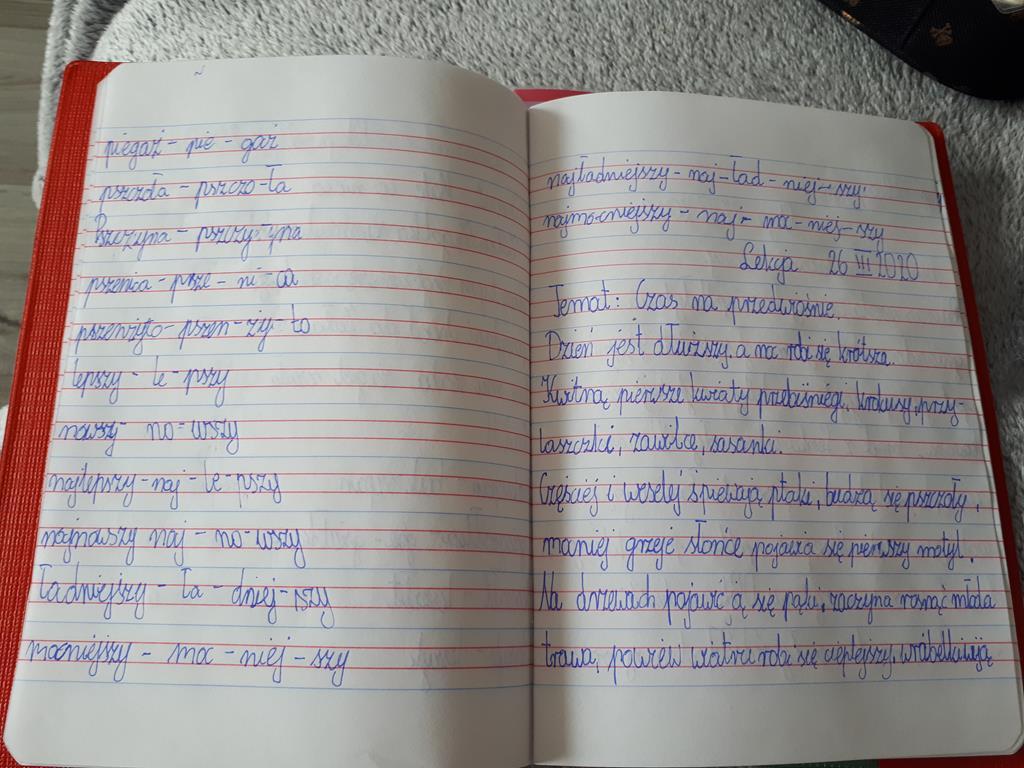 piegaż - pie - gaż
pszczoła - pszczo-ła
Pszczyna - pszczy-yna
pszenica - psze - ni - ca
pszenżyto - pszen - ży - to
lepszy - le - pszy
nowszy - no - wszy
najlepszy - naj - le - pszy
najnowszy naj - no - wszy
ładniejszy - ła - dniej - szy
mocniejszy - moc - niej - szy
najładniejszy - naj - ład - niej - szy.
najmocniejszy - naj - moc - niej - szy
Lekcja 26 III 2020
Temat: Czas na przedwiośnie.
Dzień jest dłuższy, a noc robi się krótsza.
Kwitną pierwsze kwiaty przebiśniegi, krokusy, przy-
laszczki, zawilce, sasanki.
Częściej i weselej śpiewają ptaki, budzą się pszczoły,
mocniej grzeje słońce pojawia się pierwszy motyl.
Na drzewach pojawić ą się pąki, zaczyna rosnąć młoda
trawa, powiew wiatru robi się cieplejszy, wróbelki wiją